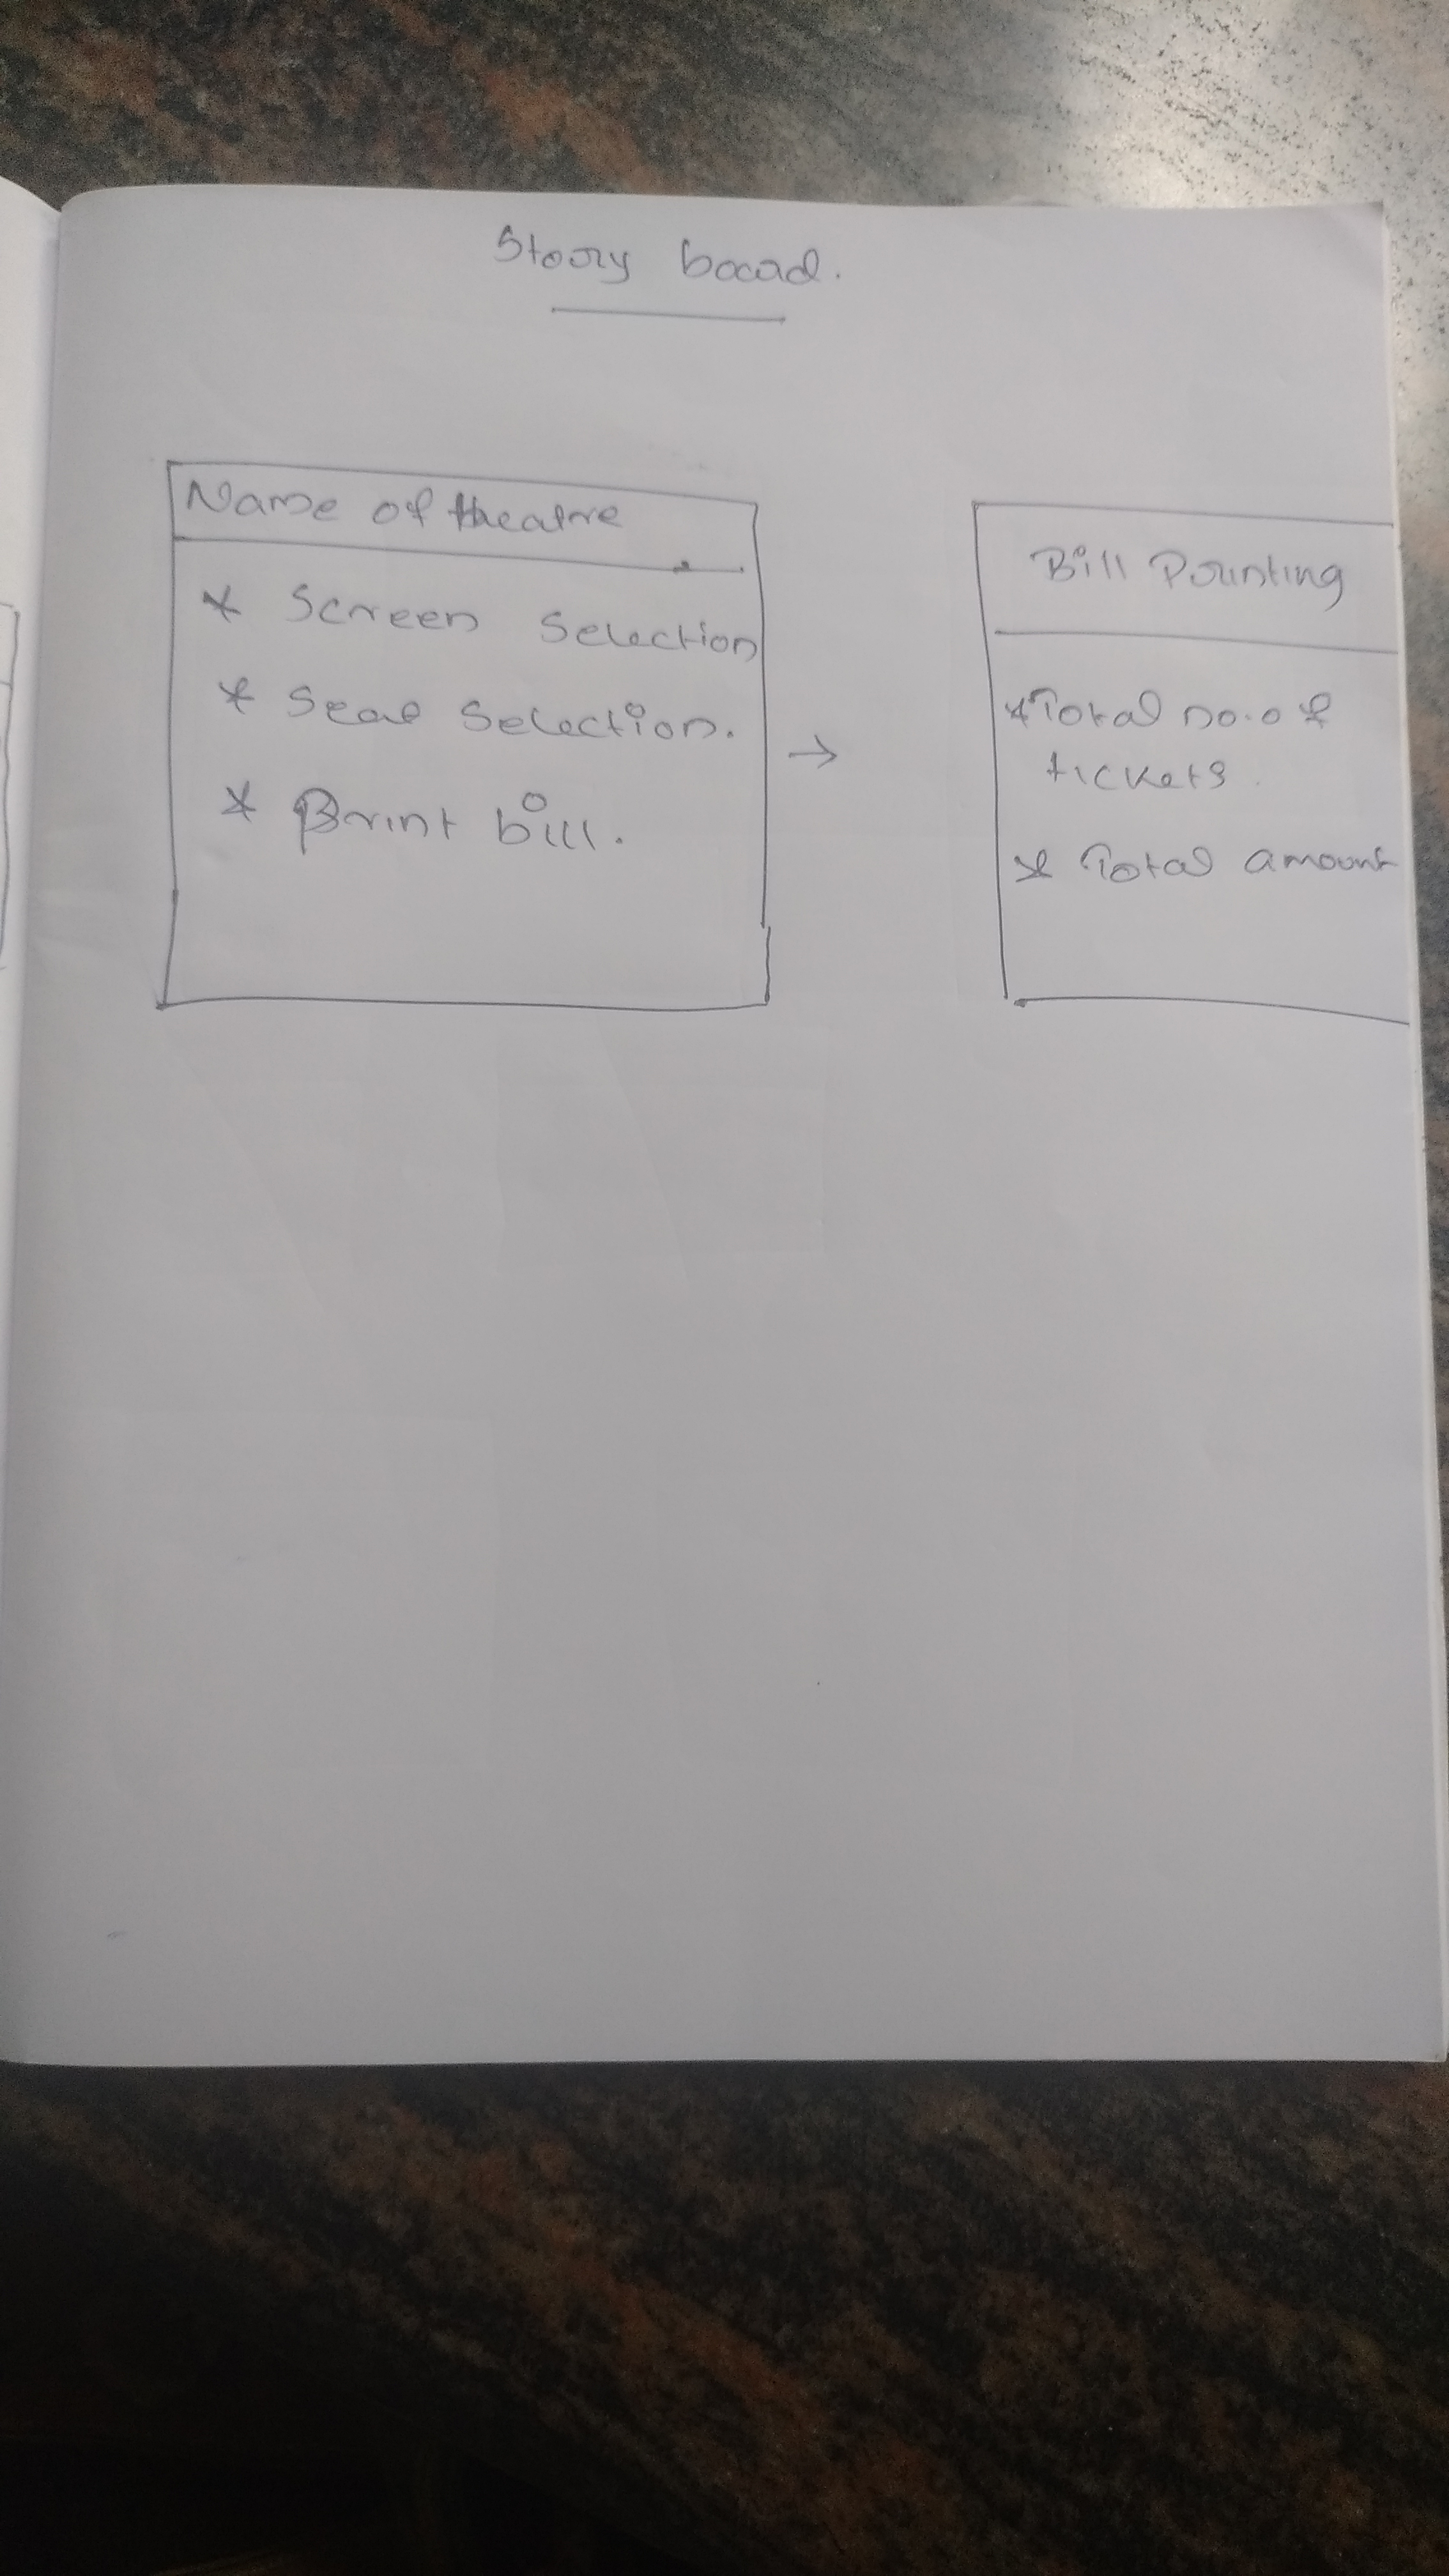 Story board.
Name of theatre
* Screen Selection
* Seat Selection.
* Print bill.
→
Bill Printing
* Total no. of
tickets.
* Total amount